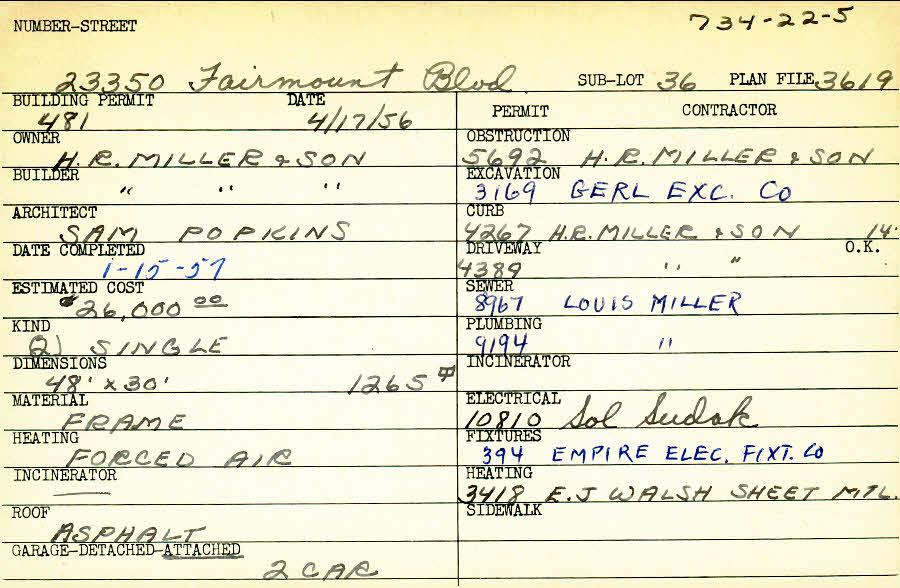 734-22-5
NUMBER-STREET
23350 Fairmount Blvd SUB-LOT 36 PLAN FILE 3619
BUILDING PERMIT DATE
481 4/17/56
OWNER
H.R. MILLER & SON
BUILDER
" " "
ARCHITECT
SAM POPKINS
DATE COMPLETED
1-15-57
ESTIMATED COST
$26,000 00
KIND
(2) SINGLE
DIMENSIONS
48' x 30' 1265
MATERIAL
FRAME
HEATING
FORCED AIR
INCINERATOR
ROOF
ASPHALT
GARAGE-DETACHED-ATTACHED
2 CAR
PERMIT CONTRACTOR
OBSTRUCTION
5692 H.R. MILLER & SON
EXCAVATION
3169 GERL EXC. CO
CURB
4267 H.R. MILLER & SON 14'
DRIVEWAY O.K.
4389 " "
SEWER
8967 LOUIS MILLER
PLUMBING
9194 "
INCINERATOR
ELECTRICAL
10810 Sol Sudak
FIXTURES
394 EMPIRE ELEC. FIXT. CO
HEATING
3418 E.J WALSH SHEET MTL.
SIDEWALK